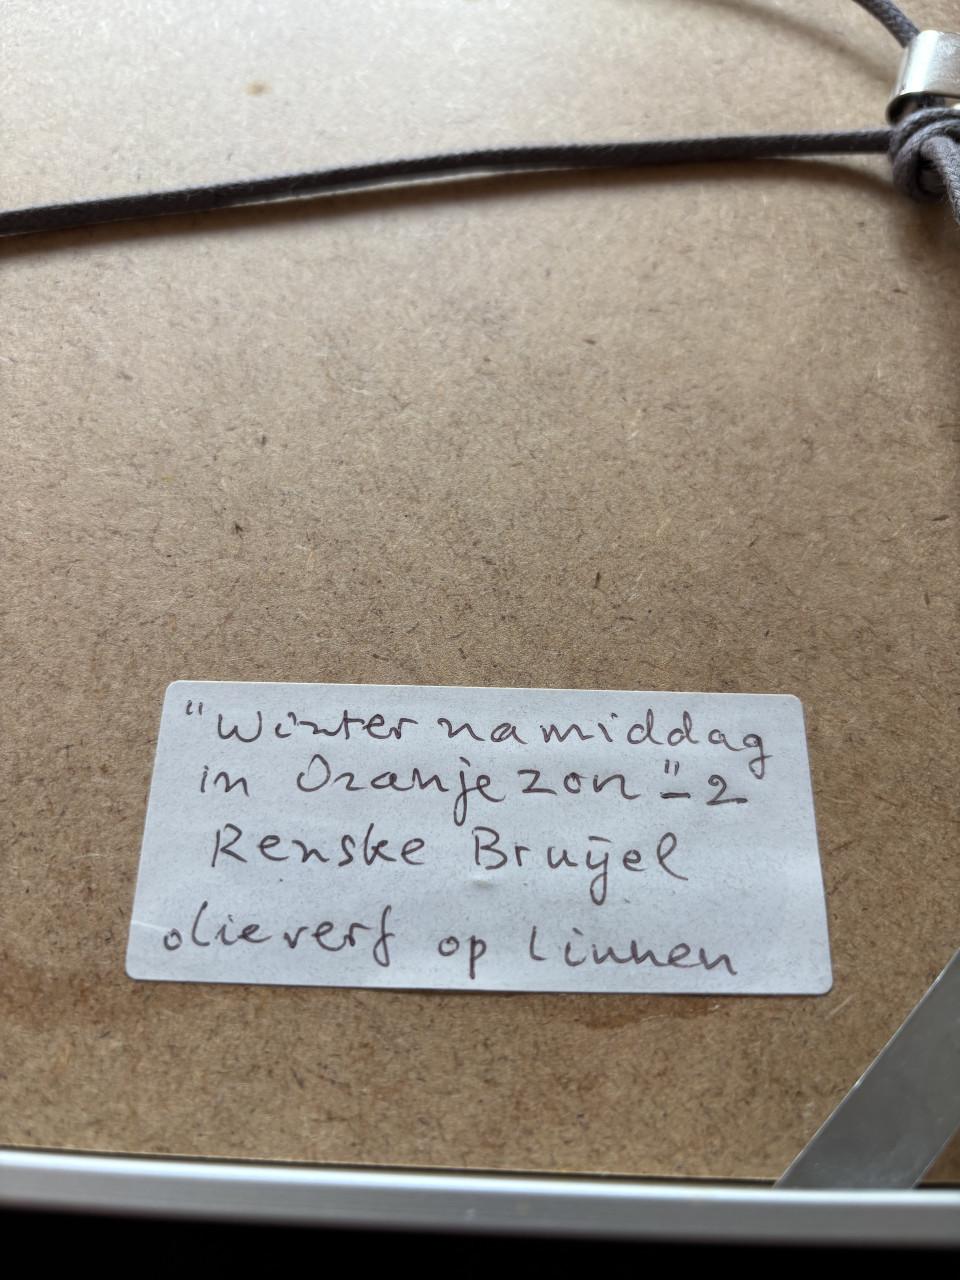 "Winternamiddag
in Oranjezon" - 2
Renske Bruijel
olieverf op linnen